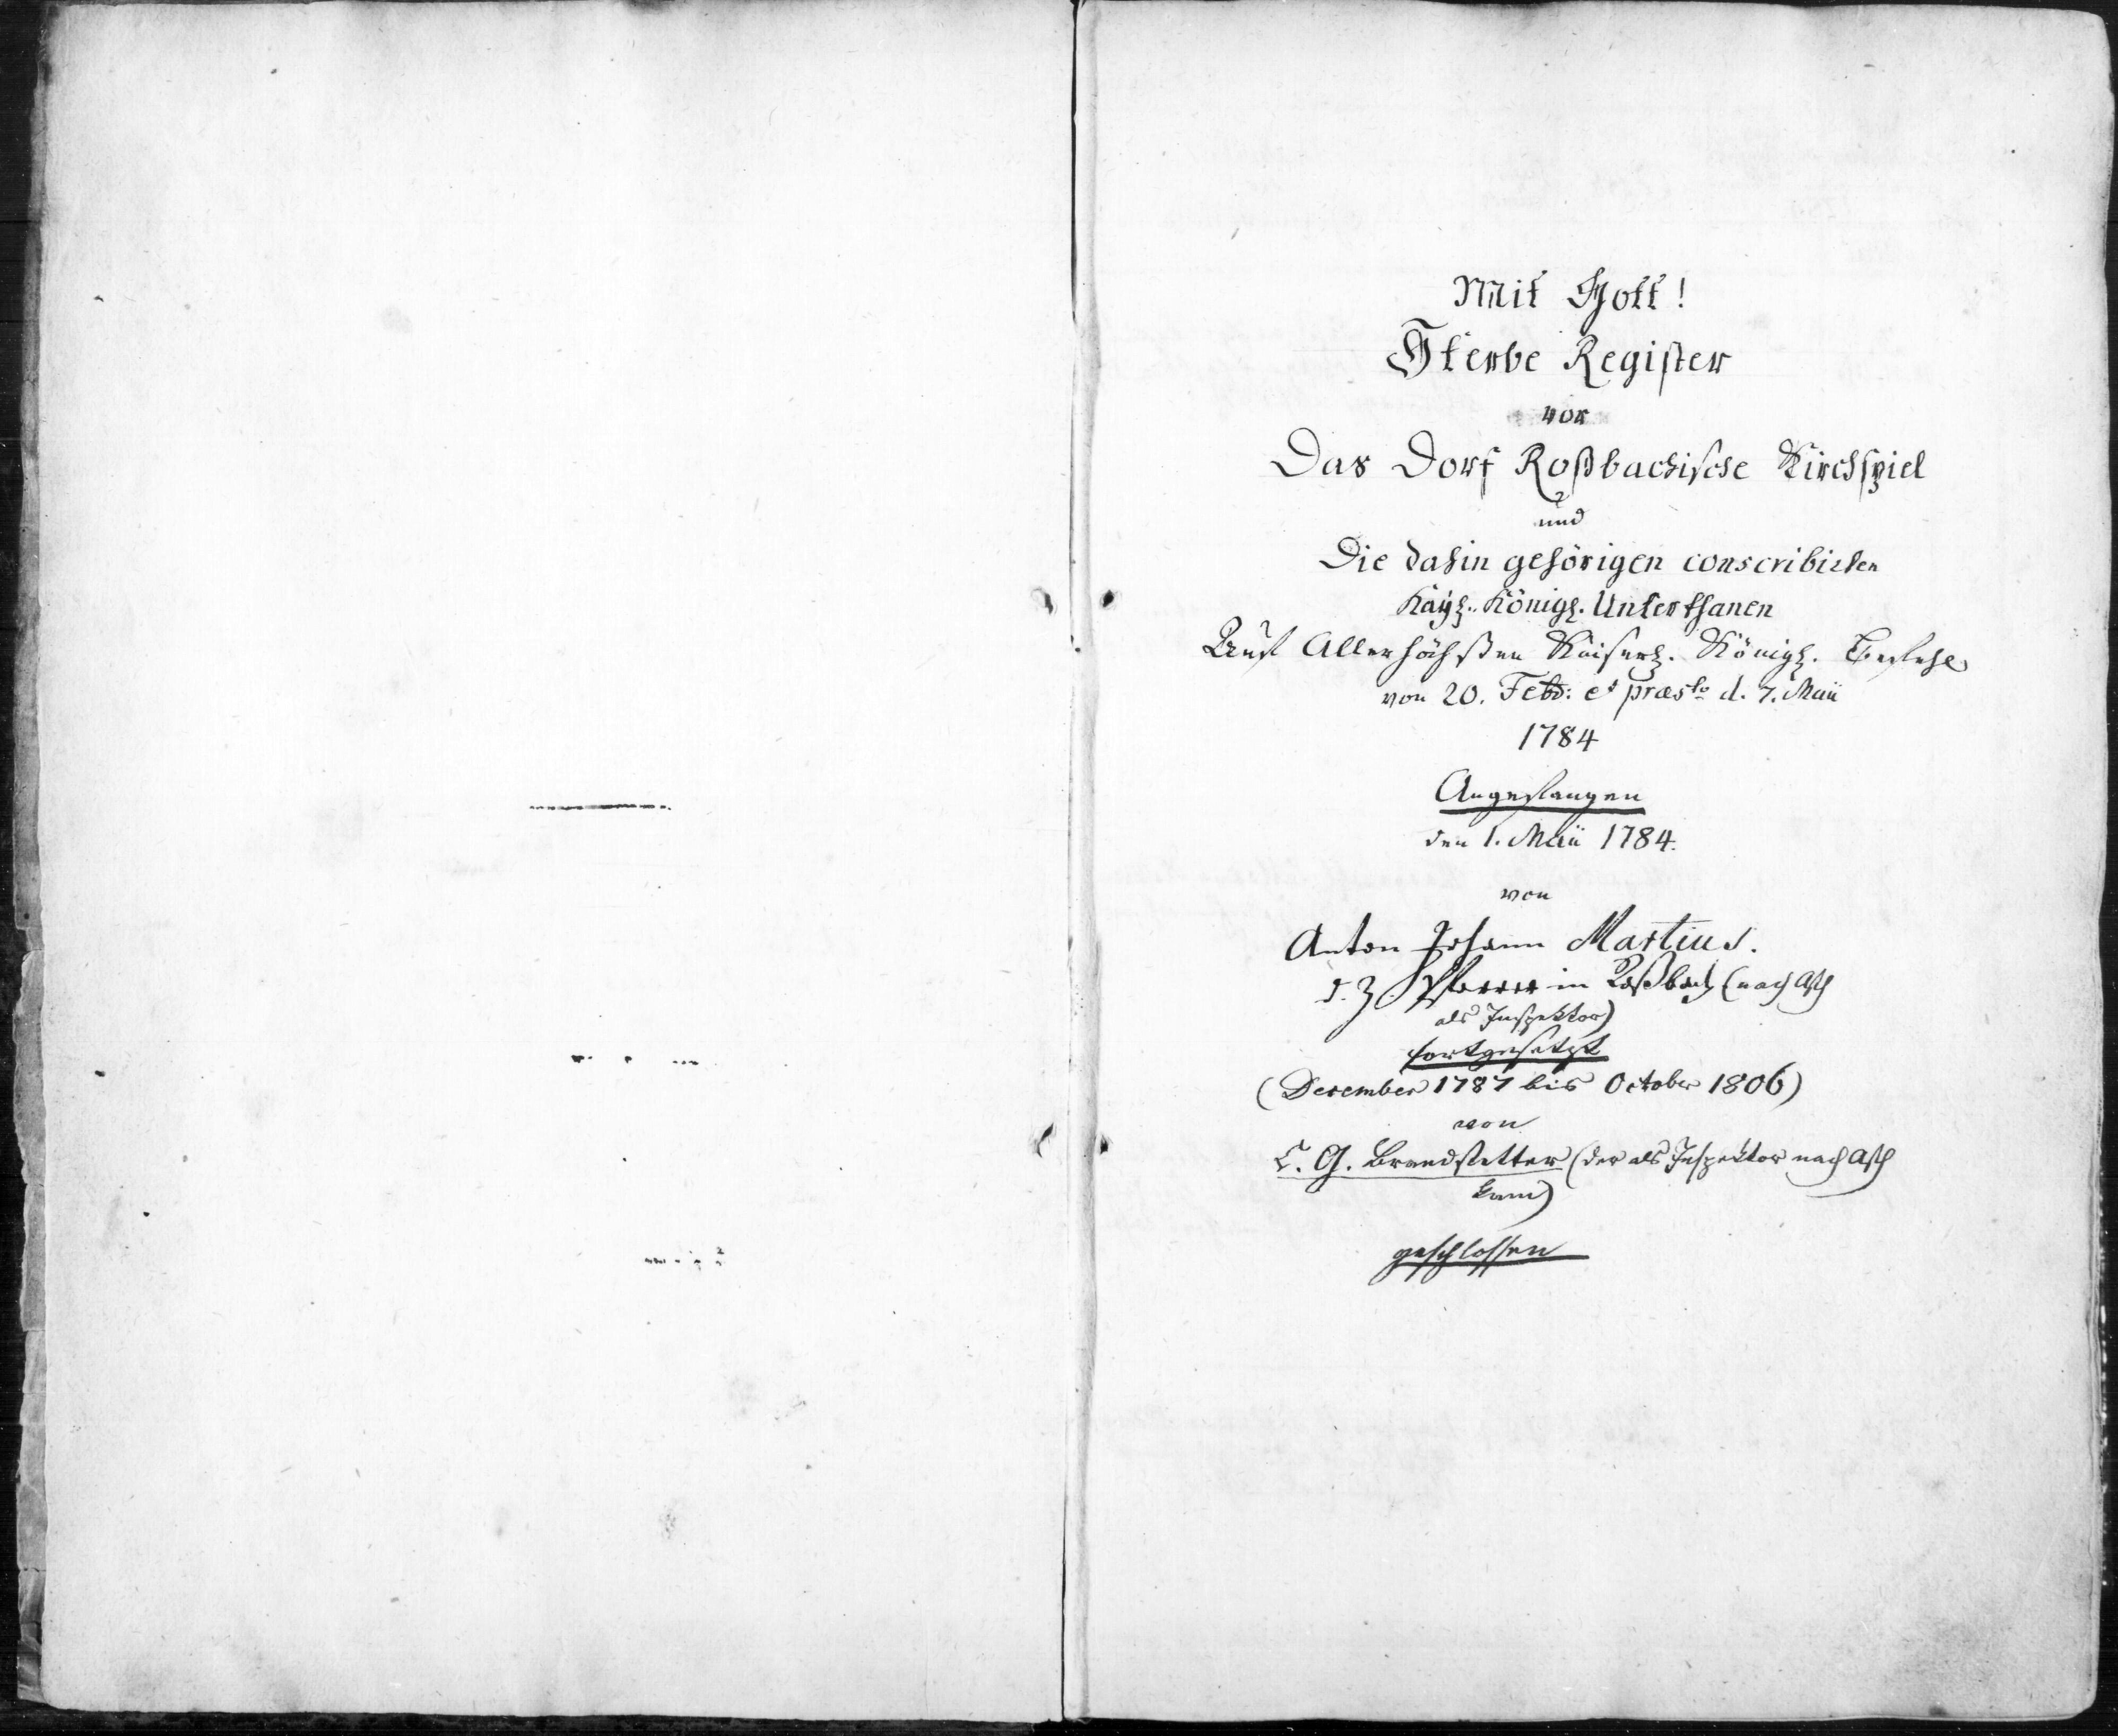 Mit Gott!
Sterbe Register
vor
Das Dorf Roßbachische Kirchspiel
und
Die dahin gehörigen conscribirten
Kayß. Königl. Unterthanen
Auf Allerhöchsten Kaiserl. Königl. Befehl
von 20. Febr: et præsto d. 7. Maii
1784
Angefangen
den 1. Maii 1784.
von
Anton Johann Martius.
d. Z. Pfarrer in Roßbach (nach Asch
als Inspektor)
fortgesetzt
(December 1787 bis October 1806)
von
C. G. Brandstetter (der als Inspektor nach Asch
kam)
geschlossen